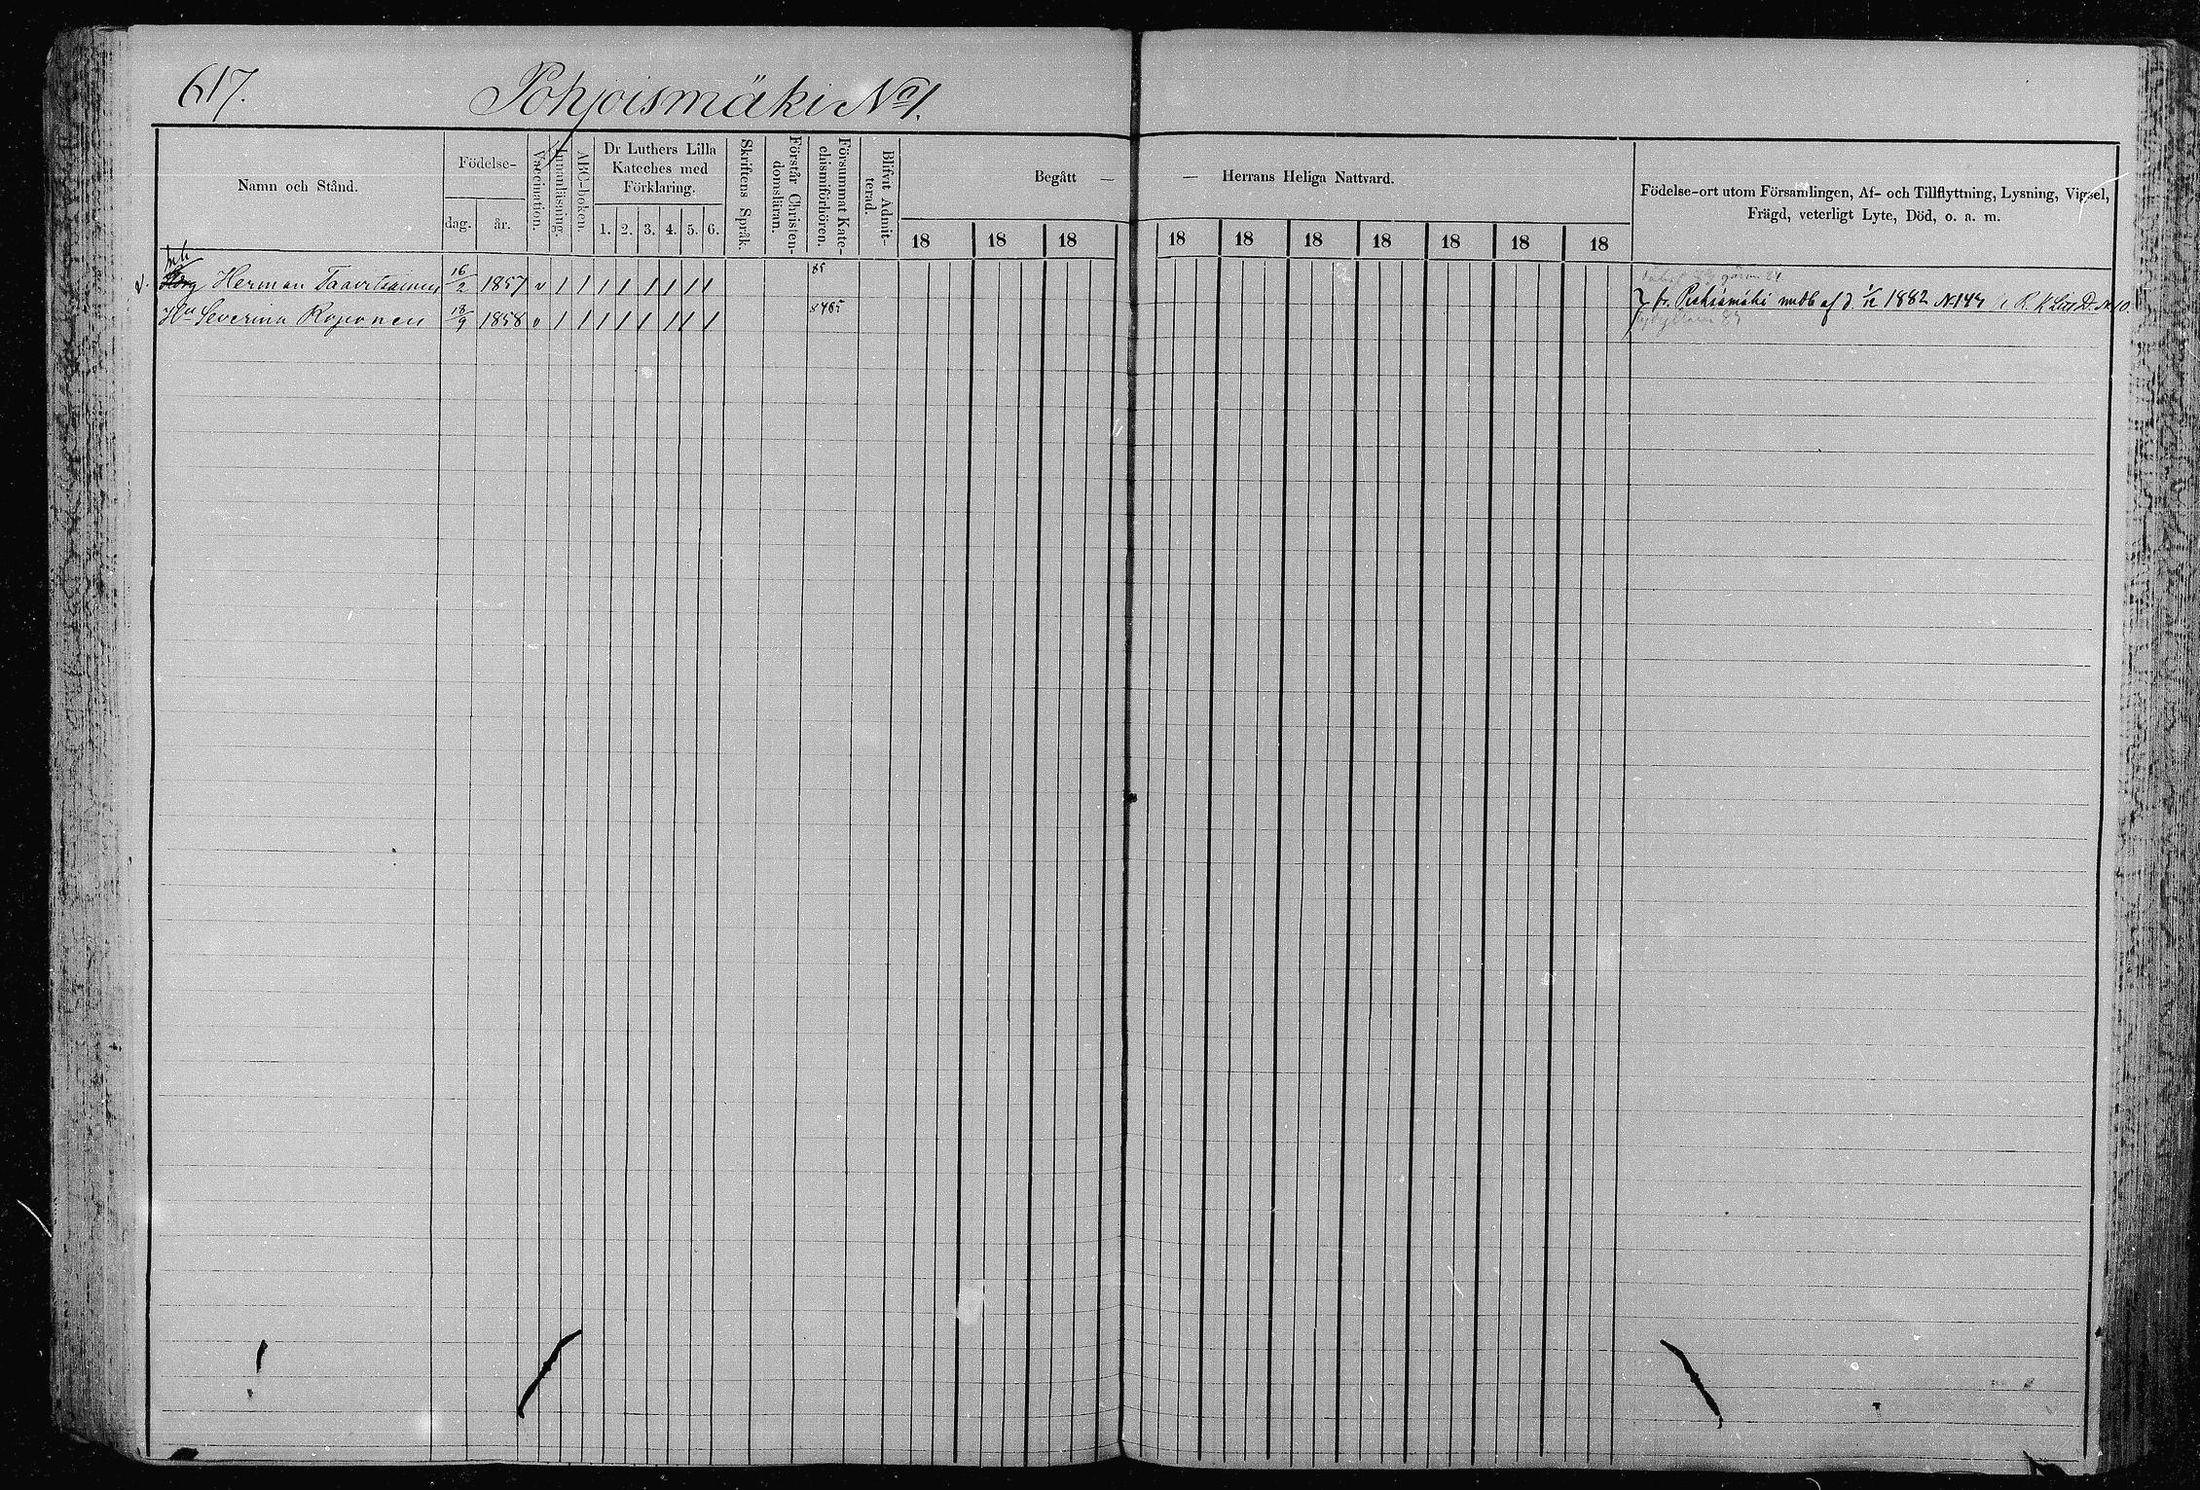 617.
Pohjoismäki No 1.
Namn och Stånd.
Födelse-
dag. år.
Vaccination.
Innanläsning.
ABC-boken.
Dr Luthers Lilla
Kateches med
Förklaring.
1. 2. 3. 4. 5. 6.
Skriftens Språk.
Förstår Christen-
domsläran.
Försummat Kate-
chismiförhören.
Blifvit Admit-
terad.
Begått — — Herrans Heliga Nattvard.
18 18 18 18 18 18 18 18 18 18
Födelse-ort utom Församlingen, Af- och Tillflyttning, Lysning, Vigsel,
Frägd, veterligt Lyte, Död, o. a. m.
Inh
Herman Taavitsainen 16/2 1857 v 1 1 1 1 1 1 1 1 85
Hu Severina Roponen 18/9 1858 v 1 1 1 1 1 1 1 1 8485
fr. mdb af d. 1882 N. 144